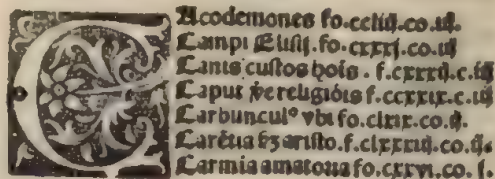 CAcodemones fo.ccliij.co.iij.
Campi Elisij.fo.cxxxj.co.iij
Canis custos hoĩs . f.cxxxij.c.iij
Caput ṽe religiõis f.ccxxix.c.iij
Carbuncul⁹ vbi fo.clxix.co.ij.
Carẽtia ẜm aristo.f.clxxxiij.co.ij.
Carmia amatoria fo.cxxvi.co.j.